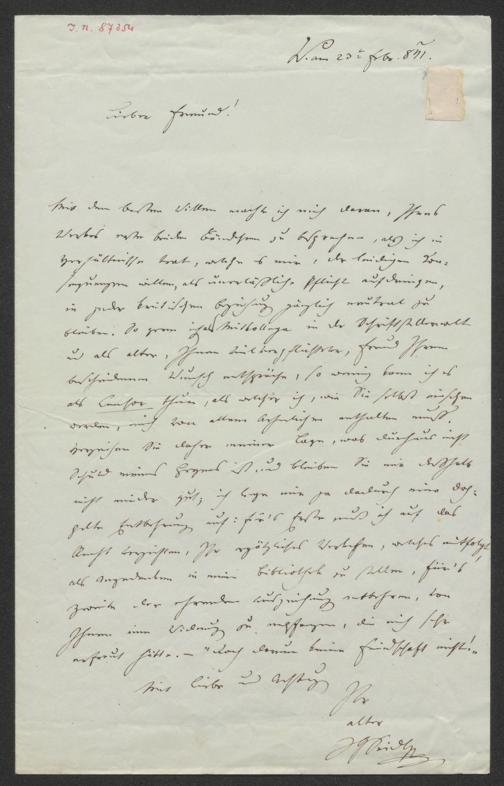 I. N. 87254
W. am 23t Febr. 841.
Lieber Freund!
Mit dem besten Willen machte ich mich daran, Ihres
Werkes erste beiden Bändchen zu besprechen, als ich in
Verhältnisse trat, welche es mir, der leidigen
willen, als unerläßliche Pflicht aufdringen,
in jeder kritischen Beziehung gänzlich neutral zu
bleiben. So gern ich als Mitkollege in der Schriftstellerwelt
und als alter, Ihnen Freund Ihrem
bescheidenen Wunsch entspräche, so wenig kann ich es
als Censor thun, als welcher ich, wie Sie selbst einsehen
werden, mich von allem Ähnlichen enthalten muß.
Verzeihen Sie daher meiner Lage, was durchaus nicht
Schuld meines Herzens ist, und bleiben Sie mir deßhalb
nicht minder gut; ich lege mir ja dadurch eine dop-
pelte Entbehrung auf: für's Erste muß ich auf das
Recht verzichten, Ihr ergötzliches Werkchen, welches mitfolgt,
als Angedenken in meine Bibliothek zu stellen, für's
zweite der ehrenden Auszeichnung entbehren, von
Ihnen eine Widmung zu empfangen, die mich sehr
erfreut hätte. – "Doch darum keine Feindschaft nicht!"
Mit Liebe und Achtung
Ihr
alter
JGSeidl